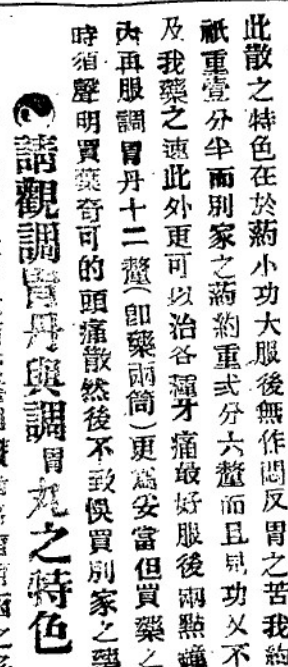 此散之特色在於葯小功大服後無作悶反胃之苦我葯
祇重壹分半而別家之葯約重弍分六釐而且見功又不
及我藥之速此外更可以治各種牙痛最好服後兩點鐘
內再服調胃丹十二釐(卽藥兩筒)更爲妥當但買藥之
時須聲明買蔡奇可的頭痛散然後不致悞買別家之藥
請觀調胃丹與調胃丸之特色